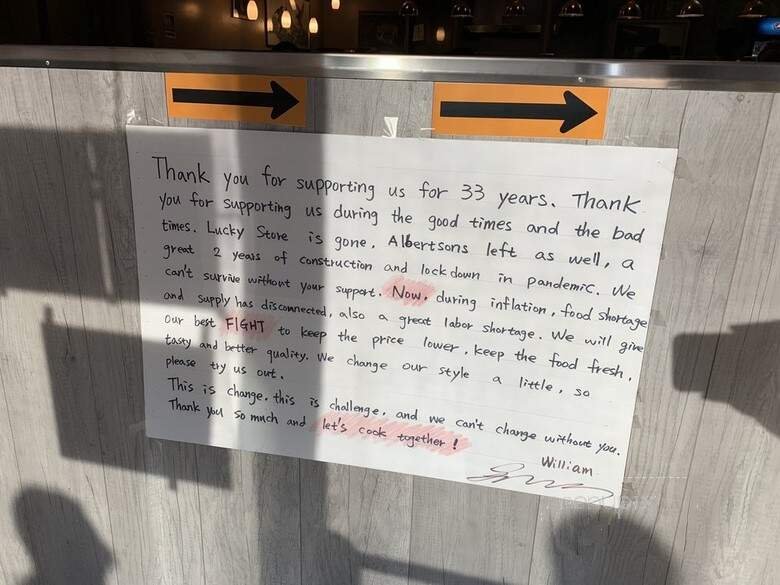 Thank you for supporting us for 33 years. Thank
you for supporting us during the good times and the bad
times. Lucky Store is gone, Albertsons left as well, a
great 2 years of construction and lock down in pandemic. We
can't survive without your support. Now, during inflation, food shortage
and supply has disconnected, also a great labor shortage. We will give
our best FIGHT to keep the price lower, keep the food fresh,
tasty and better quality. We change our style a little, so
please try us out.
This is change. this is challenge. and we can't change without you.
Thank you so much and let's cook together!
William